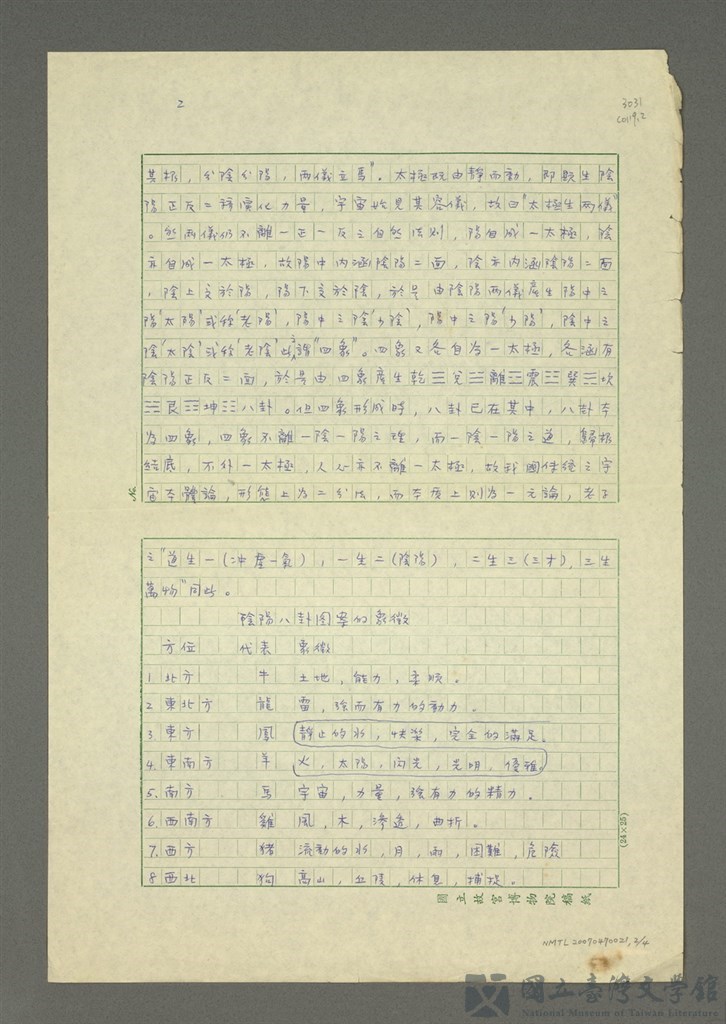 2
3031
其根,分陰分陽,兩儀立焉"。太極既由靜而動,即賦生陰
陽正反二種演化力量,宇宙始見其容儀,故曰"太極生兩儀"
。然兩儀仍不離一正一反之自然法則,陽自成一太極,陰
亦自成一太極,故陽中內涵陰陽二面,陰亦內涵陰陽二面
,陰上交於陽,陽下交於陰,於是由陰陽兩儀產生陽中之
陽'太陽'或稱'老陽',陽中之陰'少陰',陰中之陽'少陽',陰中之
陰'太陰'或稱'老陰'此謂"四象"。四象又各自為一太極,各涵有
陰陽正反二面,於是由四象產生乾☰兌☱離☲震☳巽☴坎
☵艮☶坤☷八卦。但四象形成時,八卦已在其中,八卦本
為四象,四象不離一陰一陽之理,而一陰一陽之道,歸根
結底,不外一太極,人心亦不離一太極,故我國傳統之宇
宙本體論,形態上為二分法,而本質上則為一元論,老子
No.
之"道生一(沖虛一氣),一生二(陰陽),二生三(三才),三生
萬物"同此。
陰陽八卦圖案的象徵
方位 代表 象徵
1 北方 牛 土地,能力,柔順。
2 東北方 龍 雷,強而有力的動力。
3. 東方 鳳 靜止的水,快樂,完全的滿足。
4. 東南方 羊 火,太陽,閃光,光明,優雅。
5. 南方 馬 宇宙,力量,強有力的精力。
6. 西南方 雞 風,木,滲透,曲折。
7. 西方 豬 流動的水,月,雨,困難,危險
8 西北 狗 高山,丘陵,休息,捕捉。
(24×25)
國立故宮博物院稿紙
NMTL20070490021, 2/4
國立臺灣文學館
National Museum of Taiwan Literature